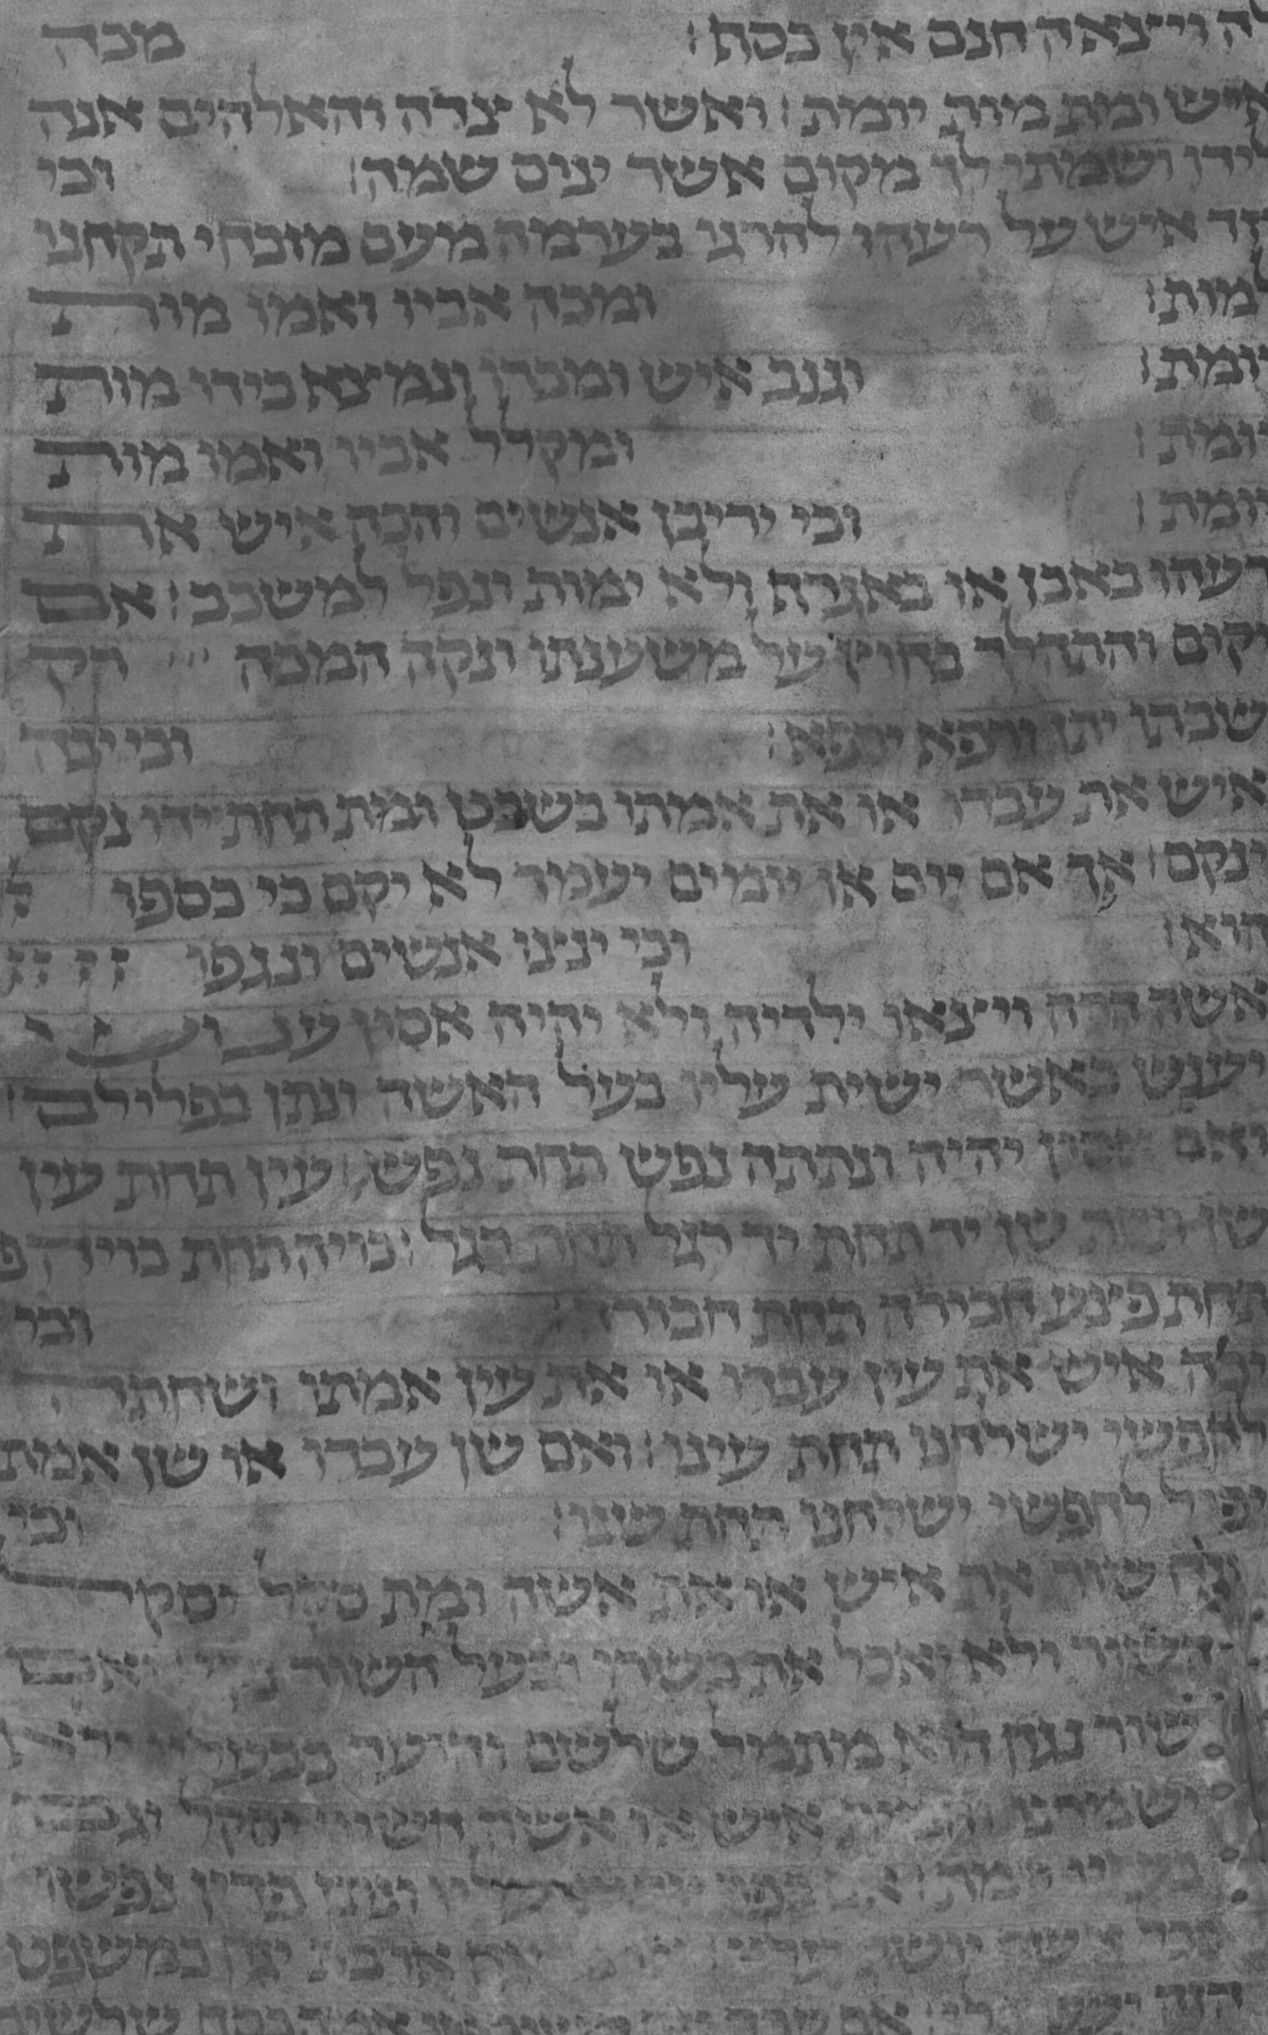 לה ויצאה חנם אין כסף׃ מכה
איש ומת מות יומת׃ ואשר לא צדה והאלהים אנה
לידו ושמתי לך מקום אשר ינוס שמה׃ וכי
יזד איש על רעהו להרגו בערמה מעם מזבחי תקחנו
למות׃ ומכה אביו ואמו מות
יומת׃ וגנב איש ומכרו ונמצא בידו מות
יומת׃ ומקלל אביו ואמו מות
יומת׃ וכי יריבן אנשים והכה איש את
רעהו באבן או באגרף ולא ימות ונפל למשכב׃ אם
יקום והתהלך בחוץ על משענתו ונקה המכה רק
שבתו יתן ורפא ירפא׃ וכי יכה
איש את עבדו או את אמתו בשבט ומת תחת ידו נקם
ינקם׃ אך אם יום או יומים יעמוד לא יקם כי כספו
הוא׃ וכי ינצו אנשים ונגפו
אשה הרה ויצאו ילדיה ולא יהיה אסון ענוש
יענש כאשר ישית עליו בעל האשה ונתן בפלילם׃
ואם אסון יהיה ונתתה נפש תחת נפש׃ עין תחת עין
שן תחת שן יד תחת יד רגל תחת רגל׃ כויה תחת כויה פ
תחת פצע חבורה תחת חבורה׃ וכי
יכה איש את עין עבדו או את עין אמתו ושחתה
לחפשי ישלחנו תחת עינו׃ ואם שן עבדו או שן אמת
יפיל לחפשי ישלחנו תחת שנו׃ וכי
יגח שור את איש או את אשה ומת סקל יסקל
השור ולא יאכל את בשרו ובעל השור נקי ואם
שור נגח הוא מתמל שלשם והועד בבעליו ולא
ישמרנו והמית איש או אשה השור יסקל וגם
בעליו יומת׃ אם כפר יושת עליו ונתן פדין נפשו
ככל אשר יושת עליו או בת יגח כמשפט
הזה יעשה לו׃ אם עבד יגח השור או אמה כסף שלשים